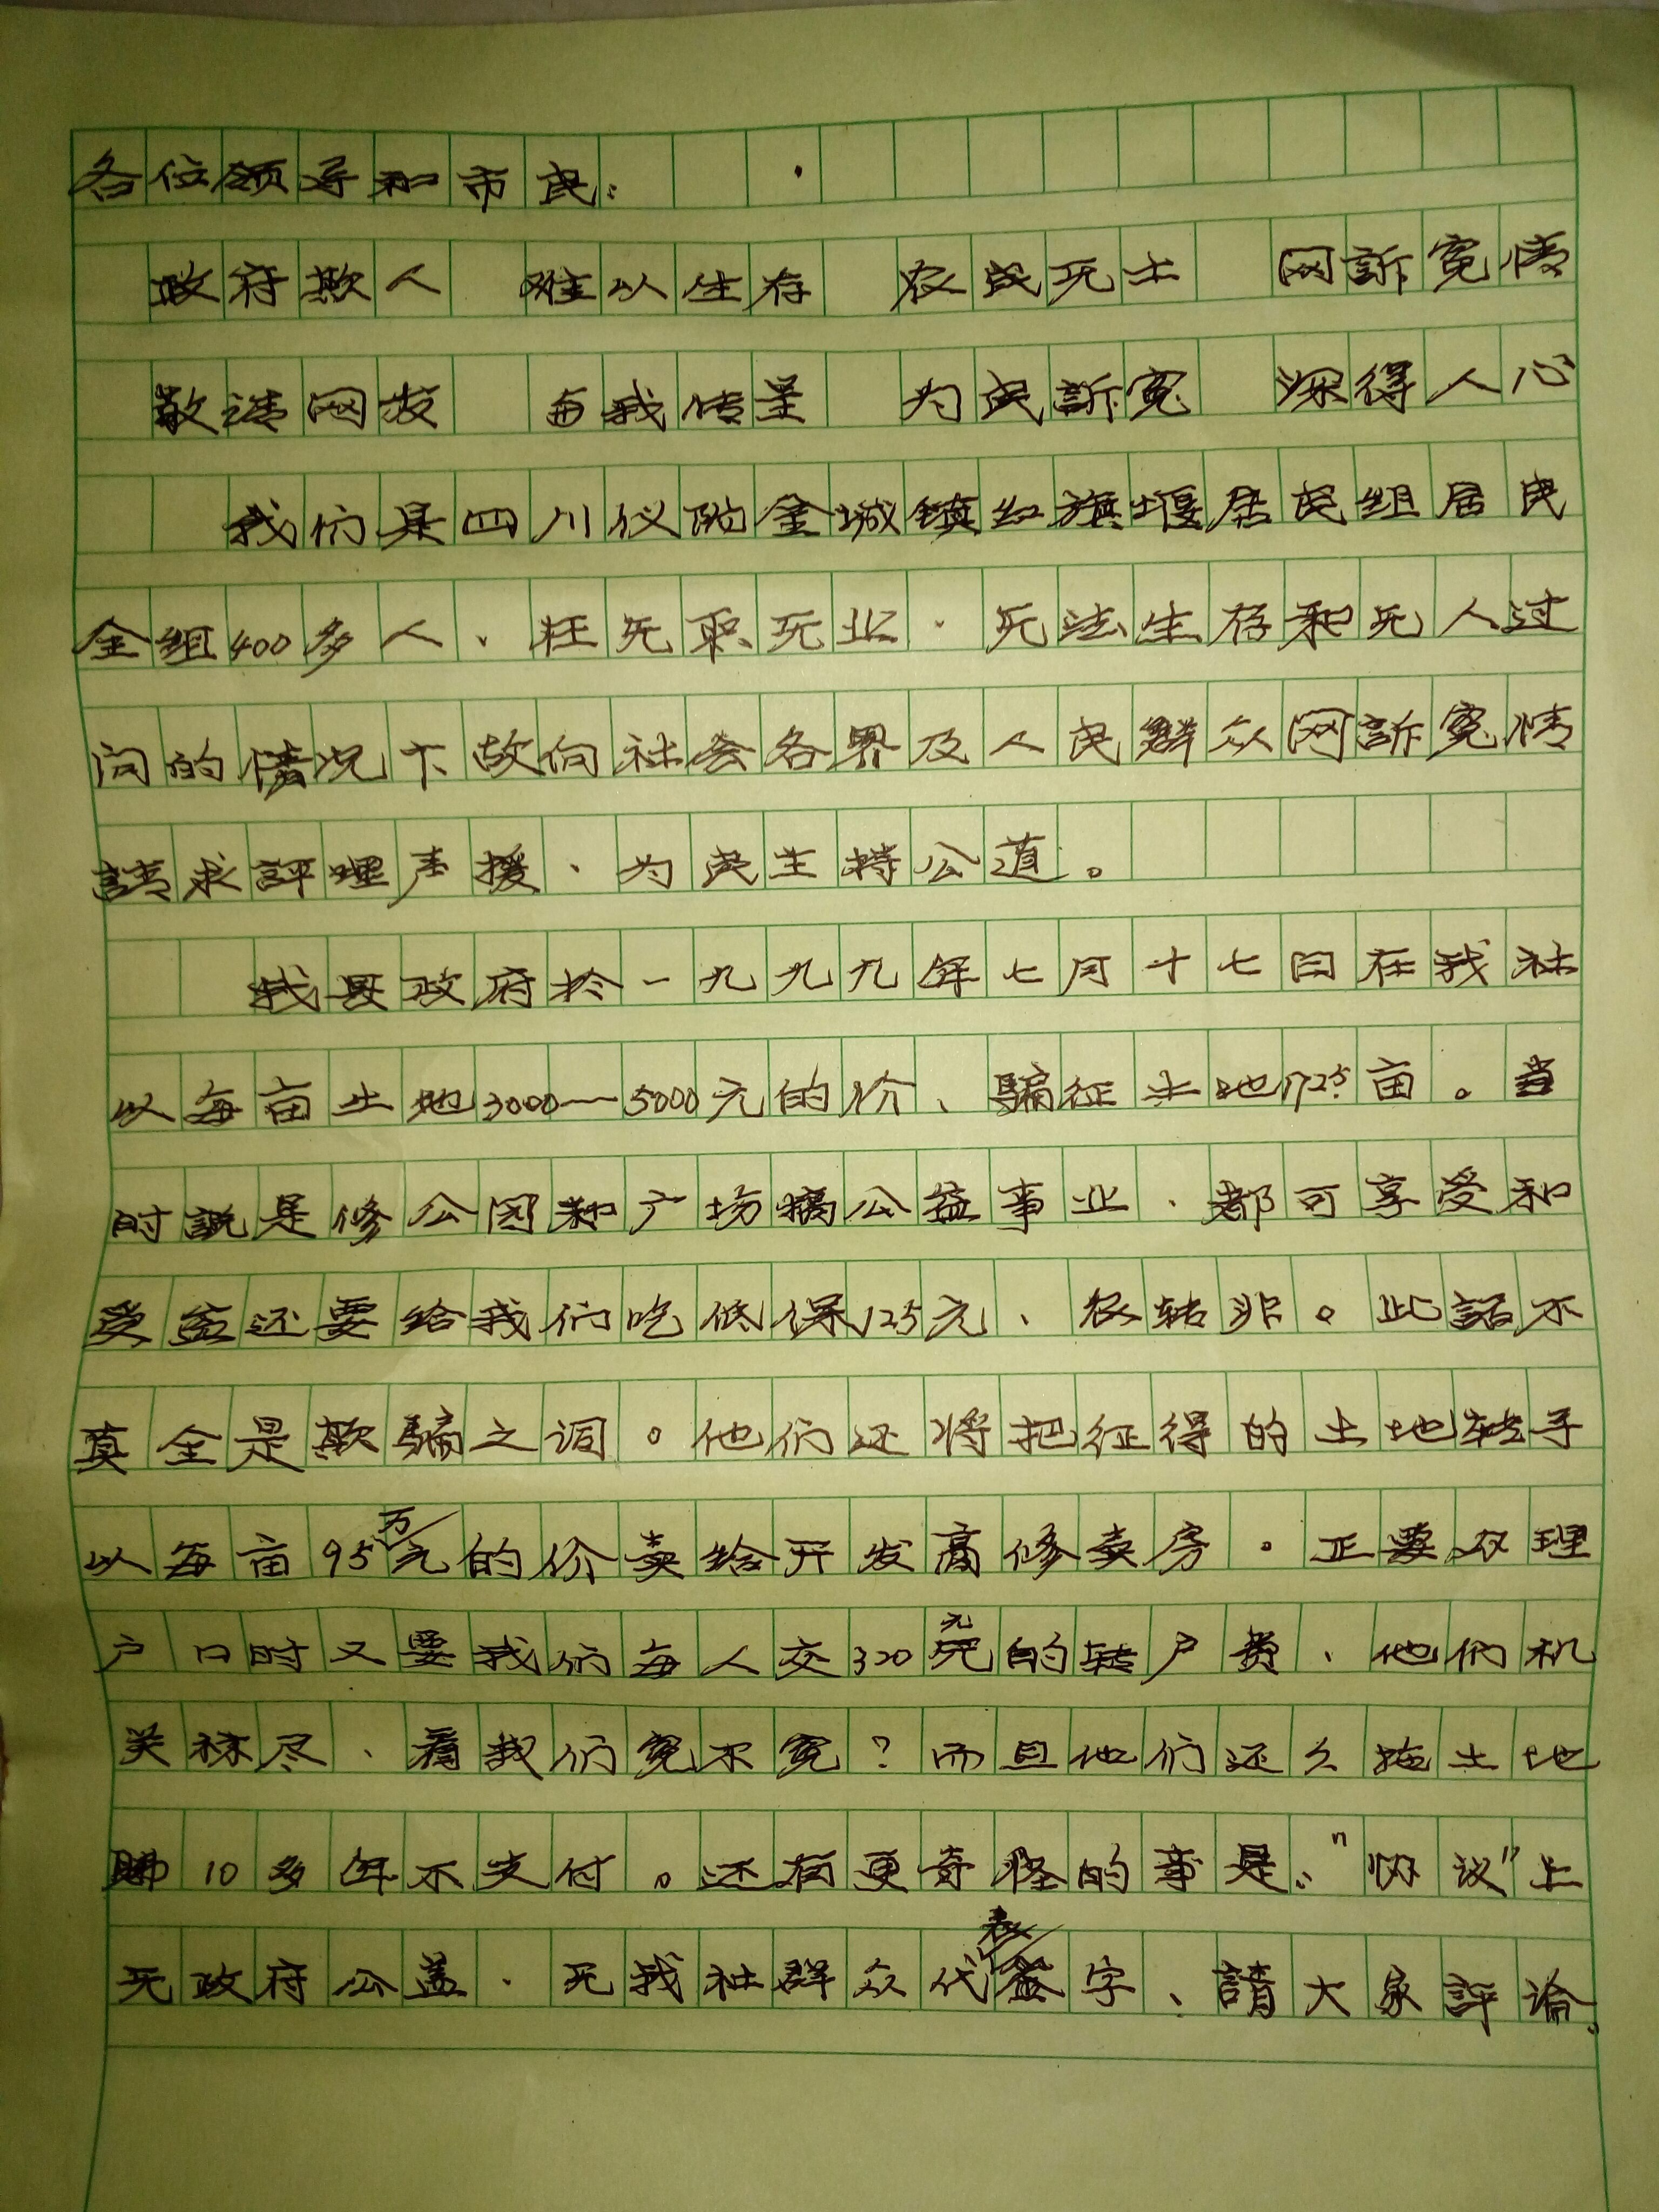 各位领导和市民：
政府欺人 难以生存 农民无土 网訴冤情
敬请网友 与我传呈 为民訴冤 深得人心
我们是四川仪陇金城镇红旗堰居民组居民
全组400多人、在无职无业、无法生存和无人过
问的情况下故向社会各界及人民群众网訴冤情
請求評理声援、为民主持公道。
我县政府於一九九九年七月十七日在我社
以每亩土地3000—5000元的价、骗征土地1725亩。当
时説是修公园和广场搞公益事业、都可享受和
受益还要给我们吃低保125元、农转非。此話不
真全是欺骗之词。他们还将把征得的土地转手
以每亩95万元的价卖给开发商修卖房。正要办理
户口时又要我们每人交320元的转户费、他们机
关秣尽、看我们冤不冤？而且他们还久拖土地
款10多年不支付。还有更奇怪的事是、"协议"上
无政府公盖、无我社群众代表签字、請大家評论。